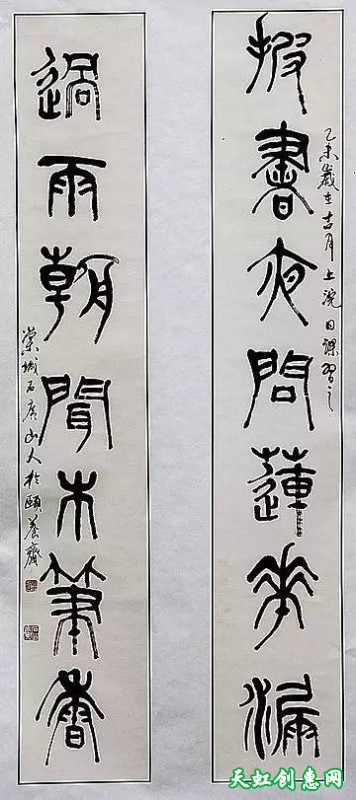 披書夜問蓮華漏
乙未歲在吉月上浣日課習之
過雨朝聞木筆香
棠城石房山人於頤養齋
天虹创惠网